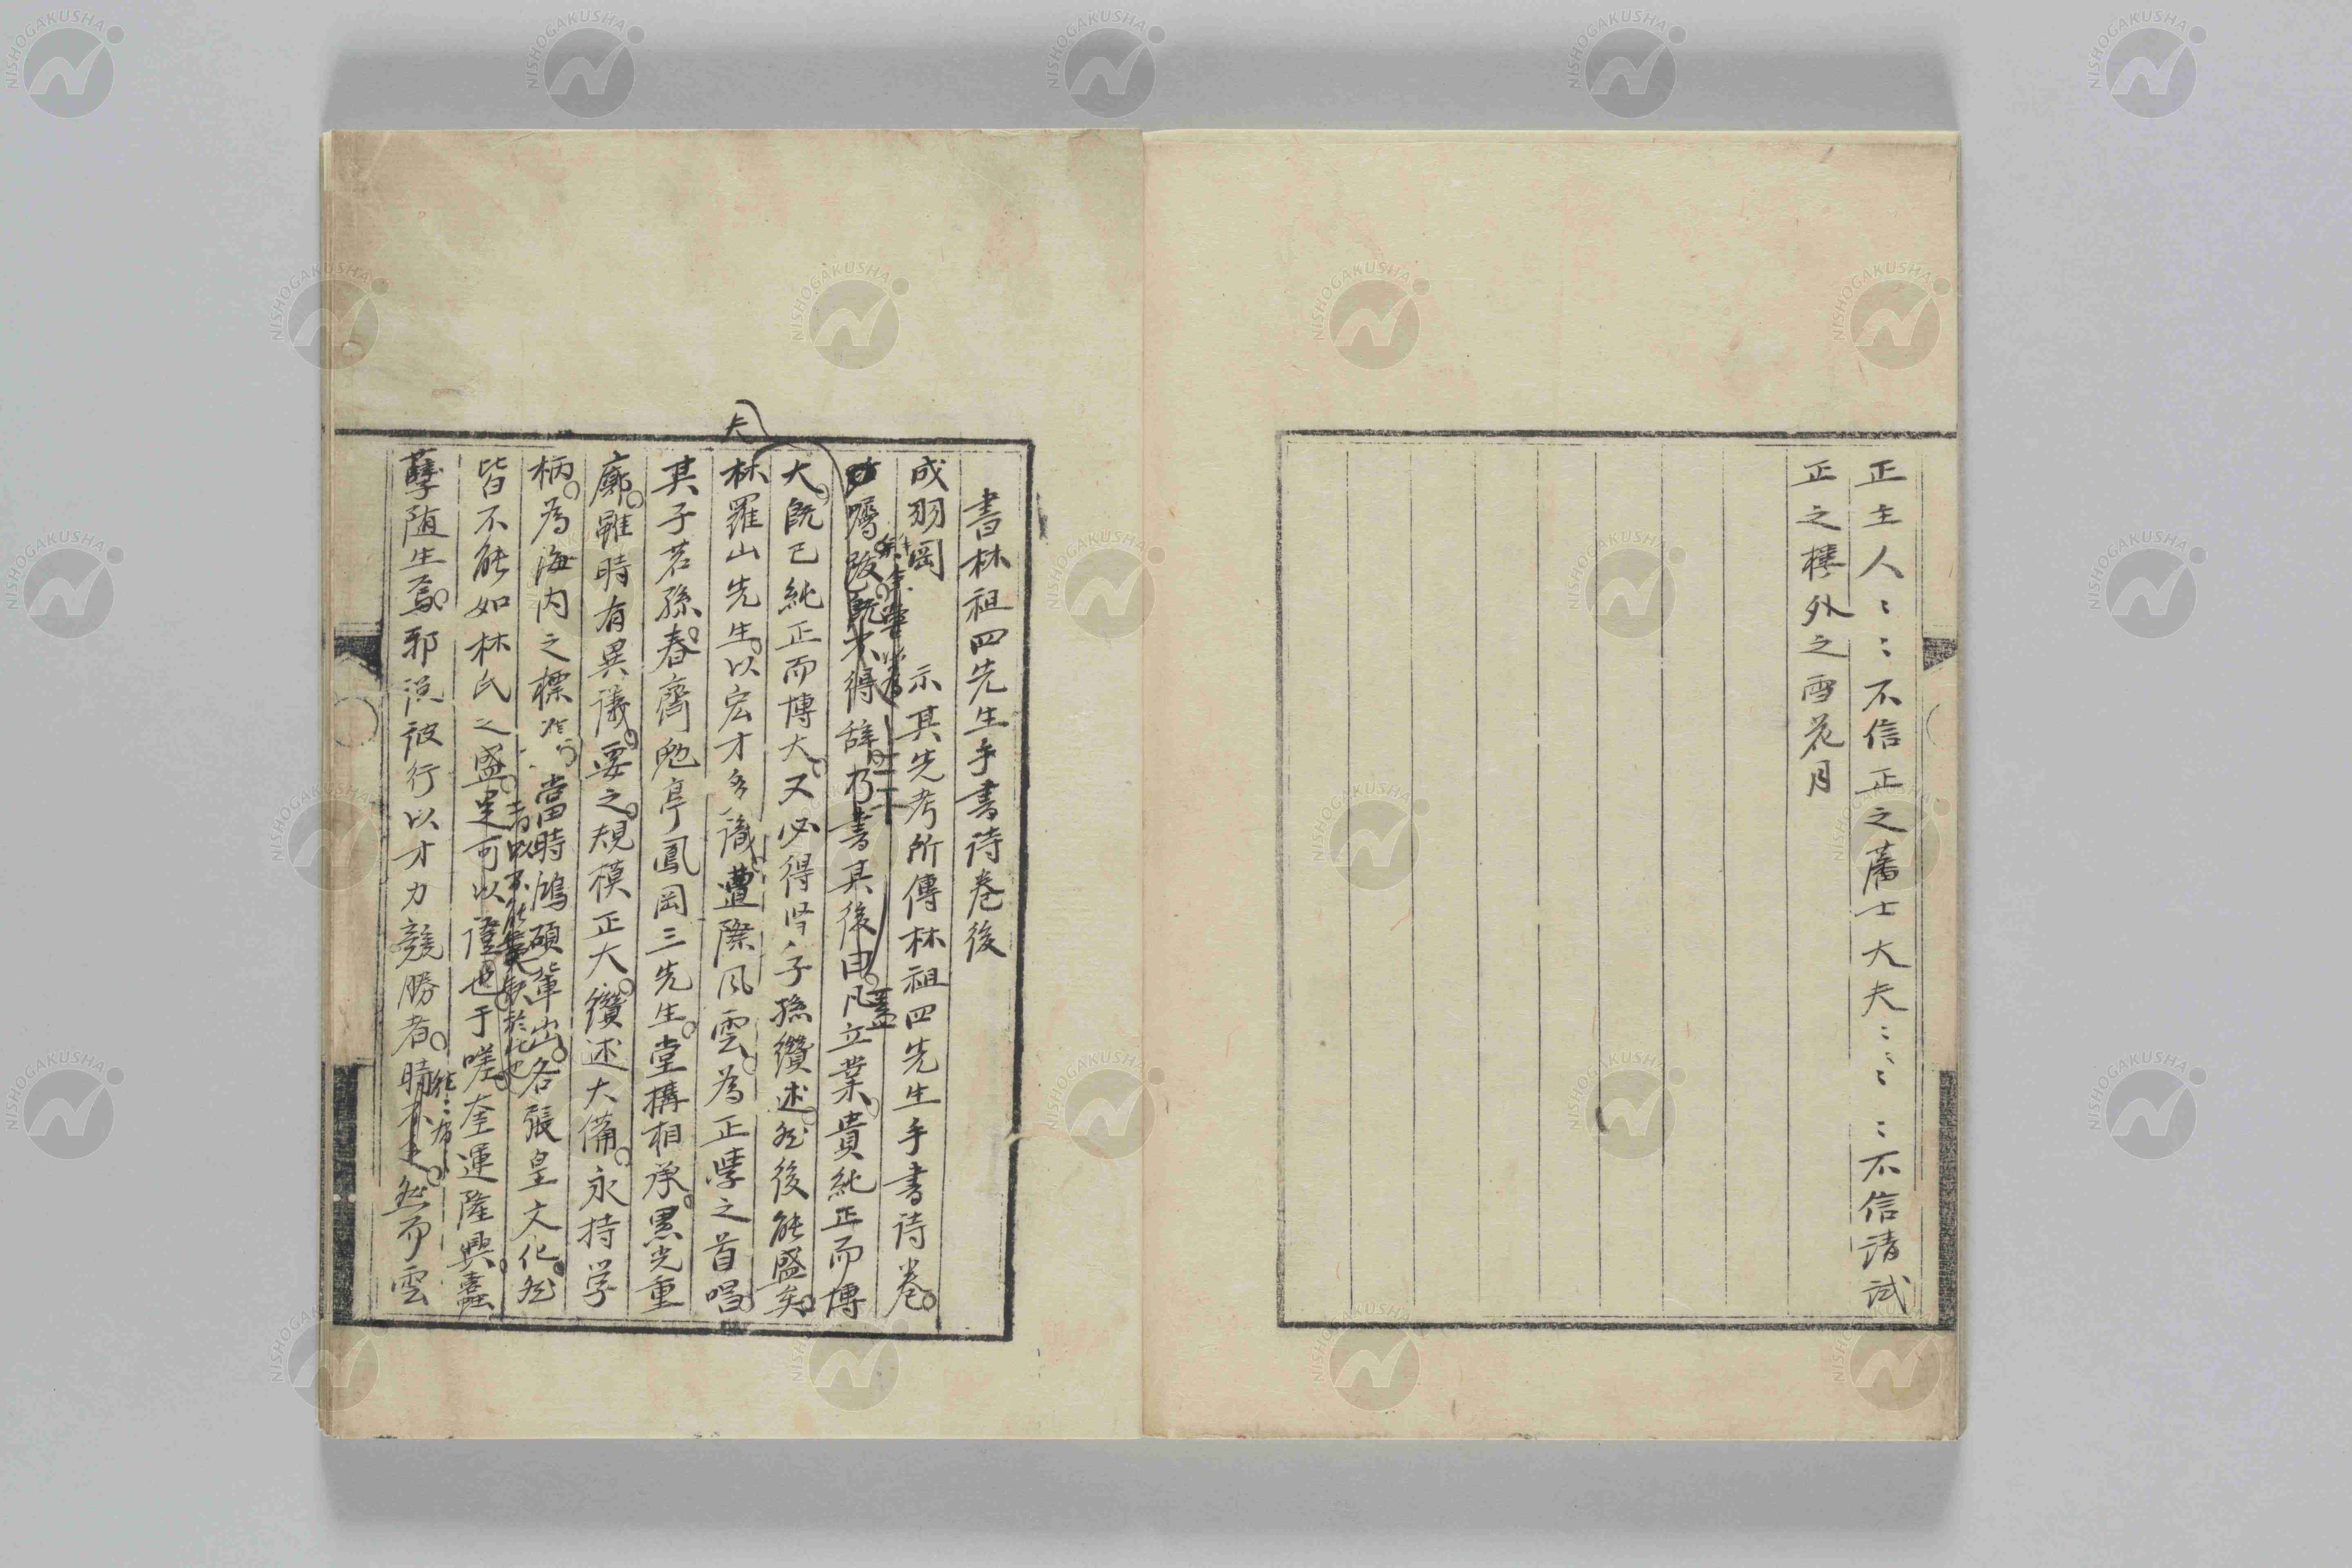 正主人〻〻不信正之藩士大夫〻〻〻〻不信請試
正之樓外之雪花月
書林祖四先生手書詩卷後
成羽岡 示其先考所傳林祖四先生手書詩卷
囑跋 不得辞 乃書其後曰 凡立業貴純正而博
蓋
大既已純正而博大又必得賢子孫纘述然後能盛矣
夫
林羅山先生以宏才多識遭際風雲為正學之首唱
其子若孫春齋勉亭鳳岡三先生堂構相承累光重
廓雖時有異議要之規模正大纘述大備永持学
柄為海内之標準 當時鴻碩輩出各張皇文化然
皆不能如林氏之盛是可以證也于嗟奎運隆興蠹
孽随生焉邪説詖行以才力競勝者 然而雲
NISHOGAKUSHA